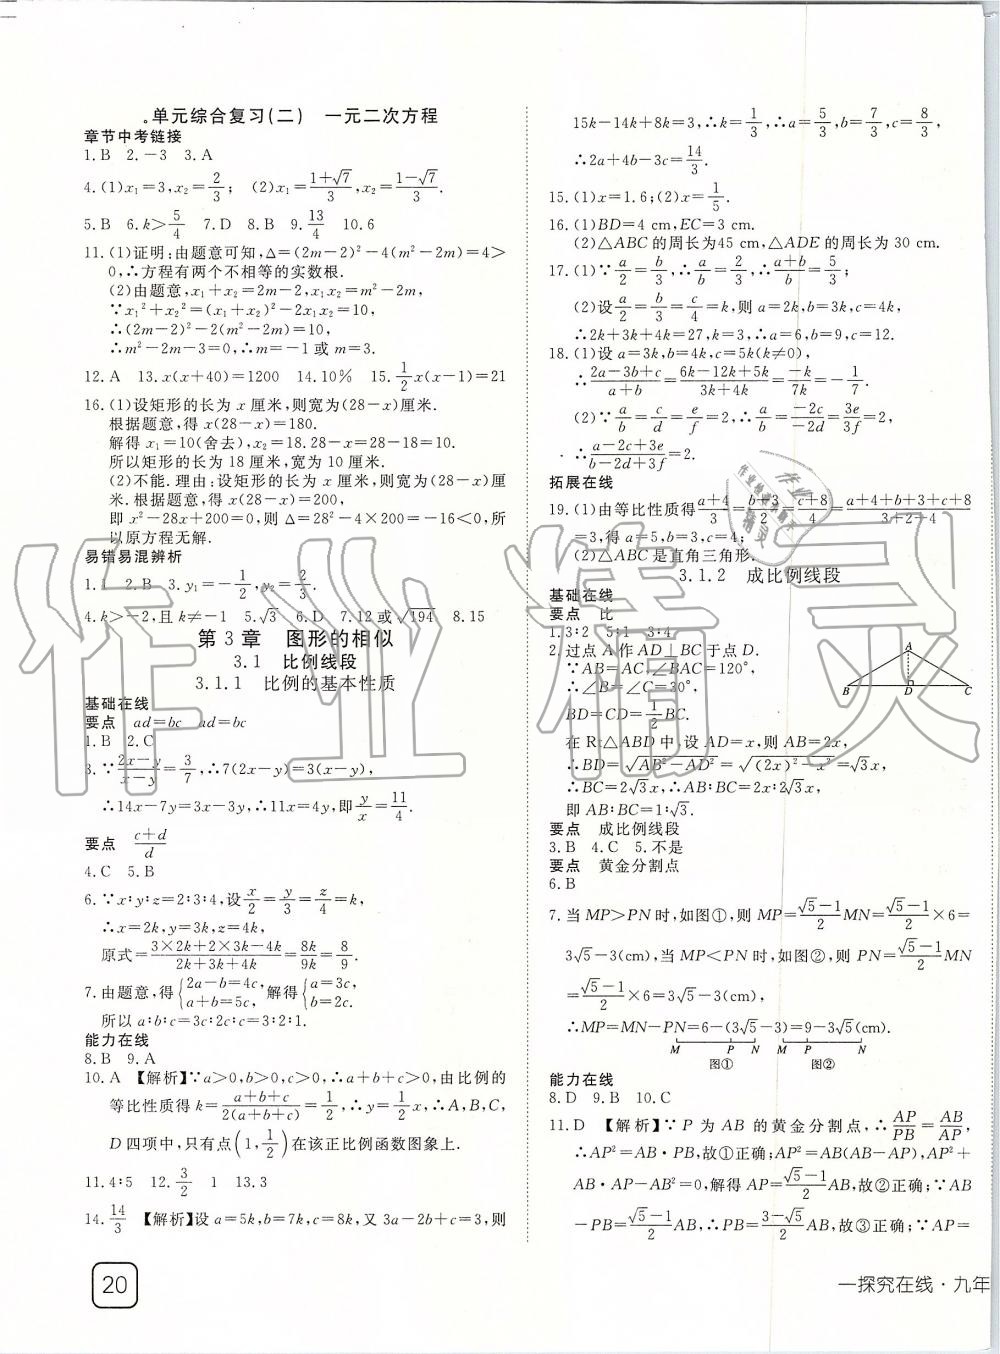 单元综合复习(二) 一元二次方程
章节中考链接
1.B 2.-3 3.A
4.(1)x₁=3,x₂=2/3; (2)x₁=(1+√7)/3,x₂=(1-√7)/3.
5.B 6.k>5/4 7.D 8.B 9.13/4 10.6
11.(1)证明:由题意可知,Δ=(2m-2)²-4(m²-2m)=4>
0,∴方程有两个不相等的实数根.
(2)由题意,x₁+x₂=2m-2,x₁x₂=m²-2m,
∵x₁²+x₂²=(x₁+x₂)²-2x₁x₂=10,
∴(2m-2)²-2(m²-2m)=10,
∴m²-2m-3=0,∴m=-1或m=3.
12.A 13.x(x+40)=1200 14.10% 15.1/2x(x-1)=21
16.(1)设矩形的长为x厘米,则宽为(28-x)厘米.
根据题意,得x(28-x)=180.
解得x₁=10(舍去),x₂=18.28-x=28-18=10.
所以矩形的长为18厘米,宽为10厘米.
(2)不能.理由:设矩形的长为x厘米,则宽为(28-x)厘米.根据题意,得x(28-x)=200,
即x²-28x+200=0,则Δ=28²-4×200=-16<0,所
以原方程无解.
易错易混辨析
1.1 2.B 3.y₁=-1/2,y₂=2/3.
4.k>-2,且k≠-1 5.√3 6.D 7.12或√194 8.15
第3章 图形的相似
3.1 比例线段
3.1.1 比例的基本性质
基础在线
要点 ad=bc ad=bc
1.B 2.C
3.∵(2x-y)/(x-y)=3/7,∴7(2x-y)=3(x-y),
∴14x-7y=3x-3y,∴11x=4y,即y/x=11/4.
要点 (c+d)/d
4.C 5.B
6.∵x:y:z=2:3:4,设x/2=y/3=z/4=k,
∴x=2k,y=3k,z=4k,
原式=(3×2k+2×3k-4k)/(2k+3k+4k)=8k/9k=8/9.
7.由题意,得{2a-b=4c, a+b=5c, 解得{a=3c, b=2c.
所以a:b:c=3c:2c:c=3:2:1.
能力在线
8.B 9.A
10.A 【解析】∵a>0,b>0,c>0,∴a+b+c>0,由比例的
等比性质得k=(a+b+c)/(2(a+b+c))=1/2,∴y=1/2x,∴A,B,C,
D四项中,只有点(1,1/2)在该正比例函数图象上.
11.4:5 12.3/2 1 13.3
14.14/3 【解析】设a=5k,b=7k,c=8k,又3a-2b+c=3,则
20
15k-14k+8k=3,∴k=1/3,∴a=5/3,b=7/3,c=8/3,
∴2a+4b-3c=14/3.
15.(1)x=1.6;(2)x=1/5.
16.(1)BD=4 cm,EC=3 cm.
(2)△ABC的周长为45 cm,△ADE的周长为30 cm.
17.(1)∵a/2=b/3,∴a/b=2/3,∴(a+b)/b=5/3;
(2)设a/2=b/3=c/4=k,则a=2k,b=3k,c=4k,
∴2k+3k+4k=27,k=3,∴a=6,b=9,c=12.
18.(1)设a=3k,b=4k,c=5k(k≠0),
∴(2a-3b+c)/(a+b)=(6k-12k+5k)/(3k+4k)=-k/7k=-1/7.
(2)∵a/b=c/d=e/f=2,∴a/b=-2c/-2d=3e/3f=2,
∴(a-2c+3e)/(b-2d+3f)=2.
拓展在线
19.(1)由等比性质得(a+4)/3=(b+3)/2=(c+8)/4=(a+4+b+3+c+8)/(3+2+4)
=3,得a=5,b=3,c=4;
(2)△ABC是直角三角形.
3.1.2 成比例线段
基础在线
要点 比
1.3:2 5:1 3:4
2.过点A作AD⊥BC于点D.
∵AB=AC,∠BAC=120°,
∴∠B=∠C=30°,
BD=CD=1/2BC.
在Rt△ABD中,设AD=x,则AB=2x,
∴BD=√(AB²-AD²)=√((2x)²-x²)=√3x,
∴BC=2√3x,∴AB:BC=2x:2√3x,
即AB:BC=1:√3.
A
B D C
要点 成比例线段
3.B 4.C 5.不是
要点 黄金分割点
6.B
7.当MP>PN时,如图①,则MP=(√5-1)/2MN=(√5-1)/2×6=
3√5-3(cm),当MP<PN时,如图②,则PN=(√5-1)/2MN
=(√5-1)/2×6=3√5-3(cm),
∴MP=MN-PN=6-(3√5-3)=9-3√5(cm).
M P N M P N
图① 图②
能力在线
8.D 9.B 10.C
11.D 【解析】∵P为AB的黄金分割点,∴AP/PB=AB/AP,
∴AP²=AB·PB,故①正确;AP²=AB(AB-AP),AP²+
AB·AP-AB²=0,解得AP=(√5-1)/2AB,故②正确;∵AB
-PB=(√5-1)/2AB,∴PB=(3-√5)/2AB,故③正确;∵AP=
一探究在线·九年
作业精灵